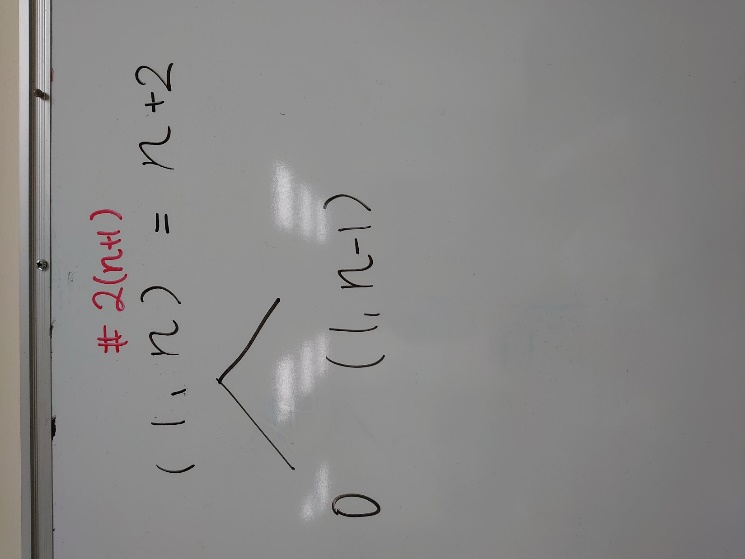 # 2(n+1)
(1, n) = n+2
0 (1, n-1)